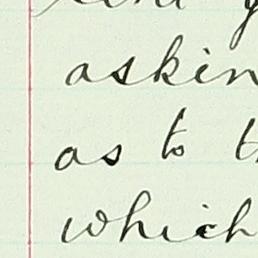 askin
as to t
which